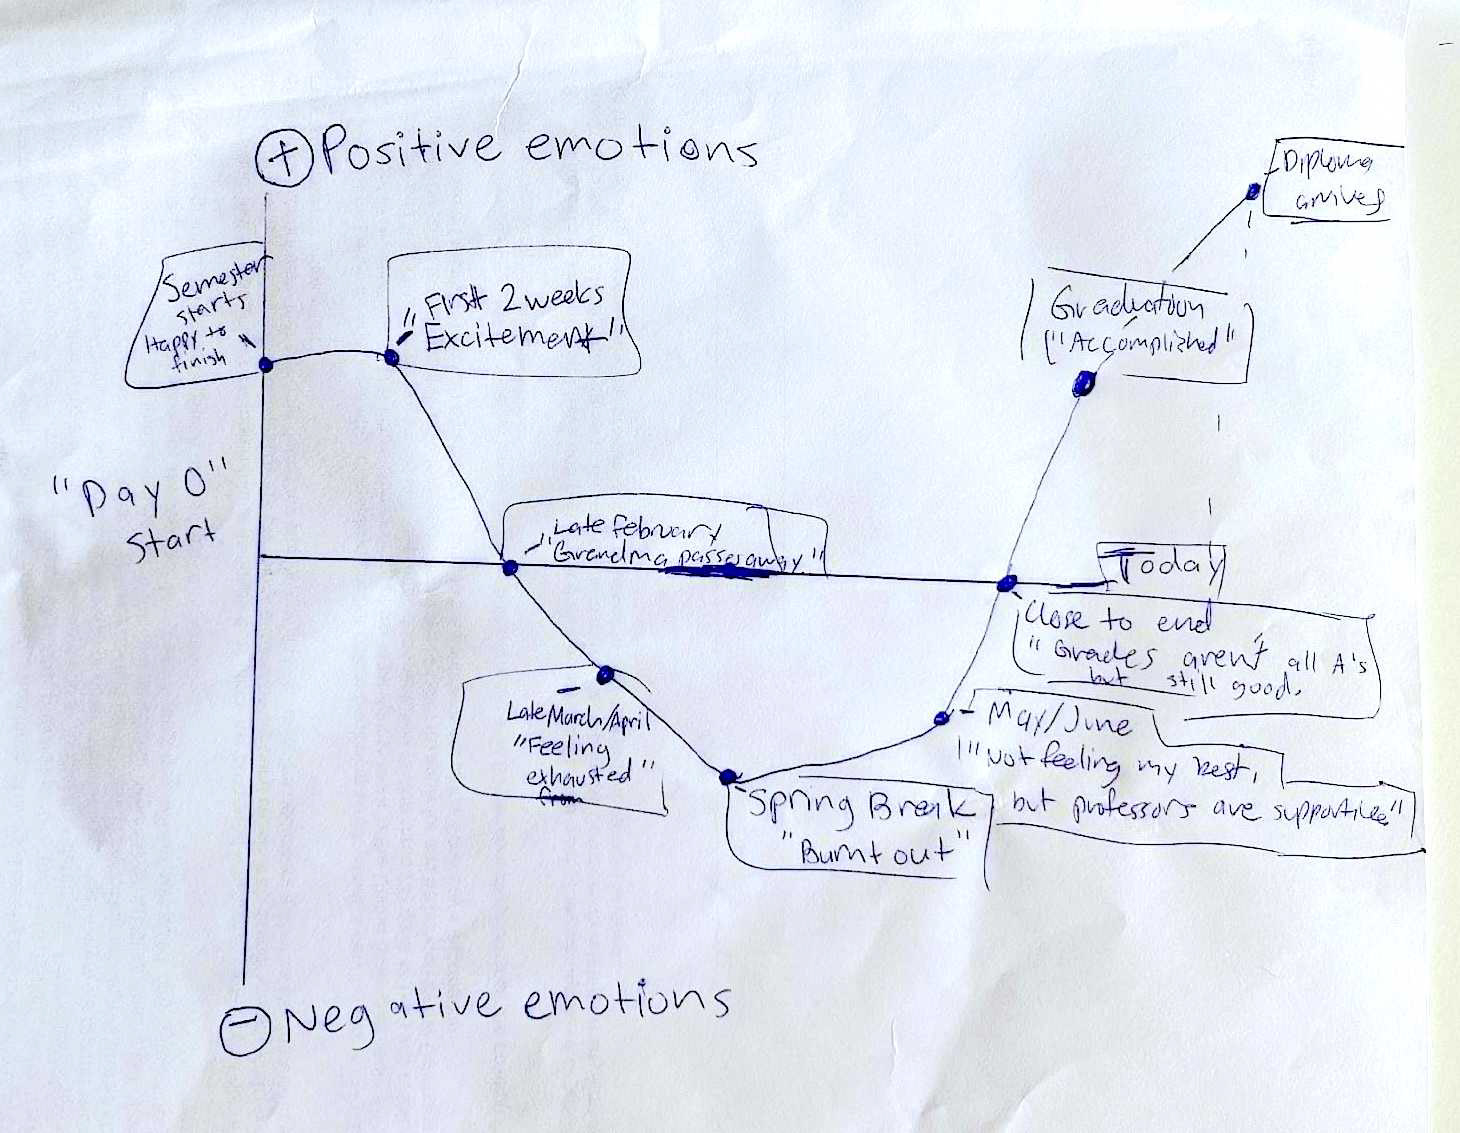 ⊕ Positive emotions
Diploma
arrives
Semester
starts
Happy to
finish
First 2 weeks
"Excitement"
Graduation
"Accomplished"
"Day 0"
start
Late february
"Grandma passes away"
Today
Close to end
"Grades aren't all A's
but still good.
Late March/April
"Feeling
exhausted"
May/June
"Not feeling my best,
but professors are supportive"
Spring Break
"Burnt out"
⊖ Negative emotions